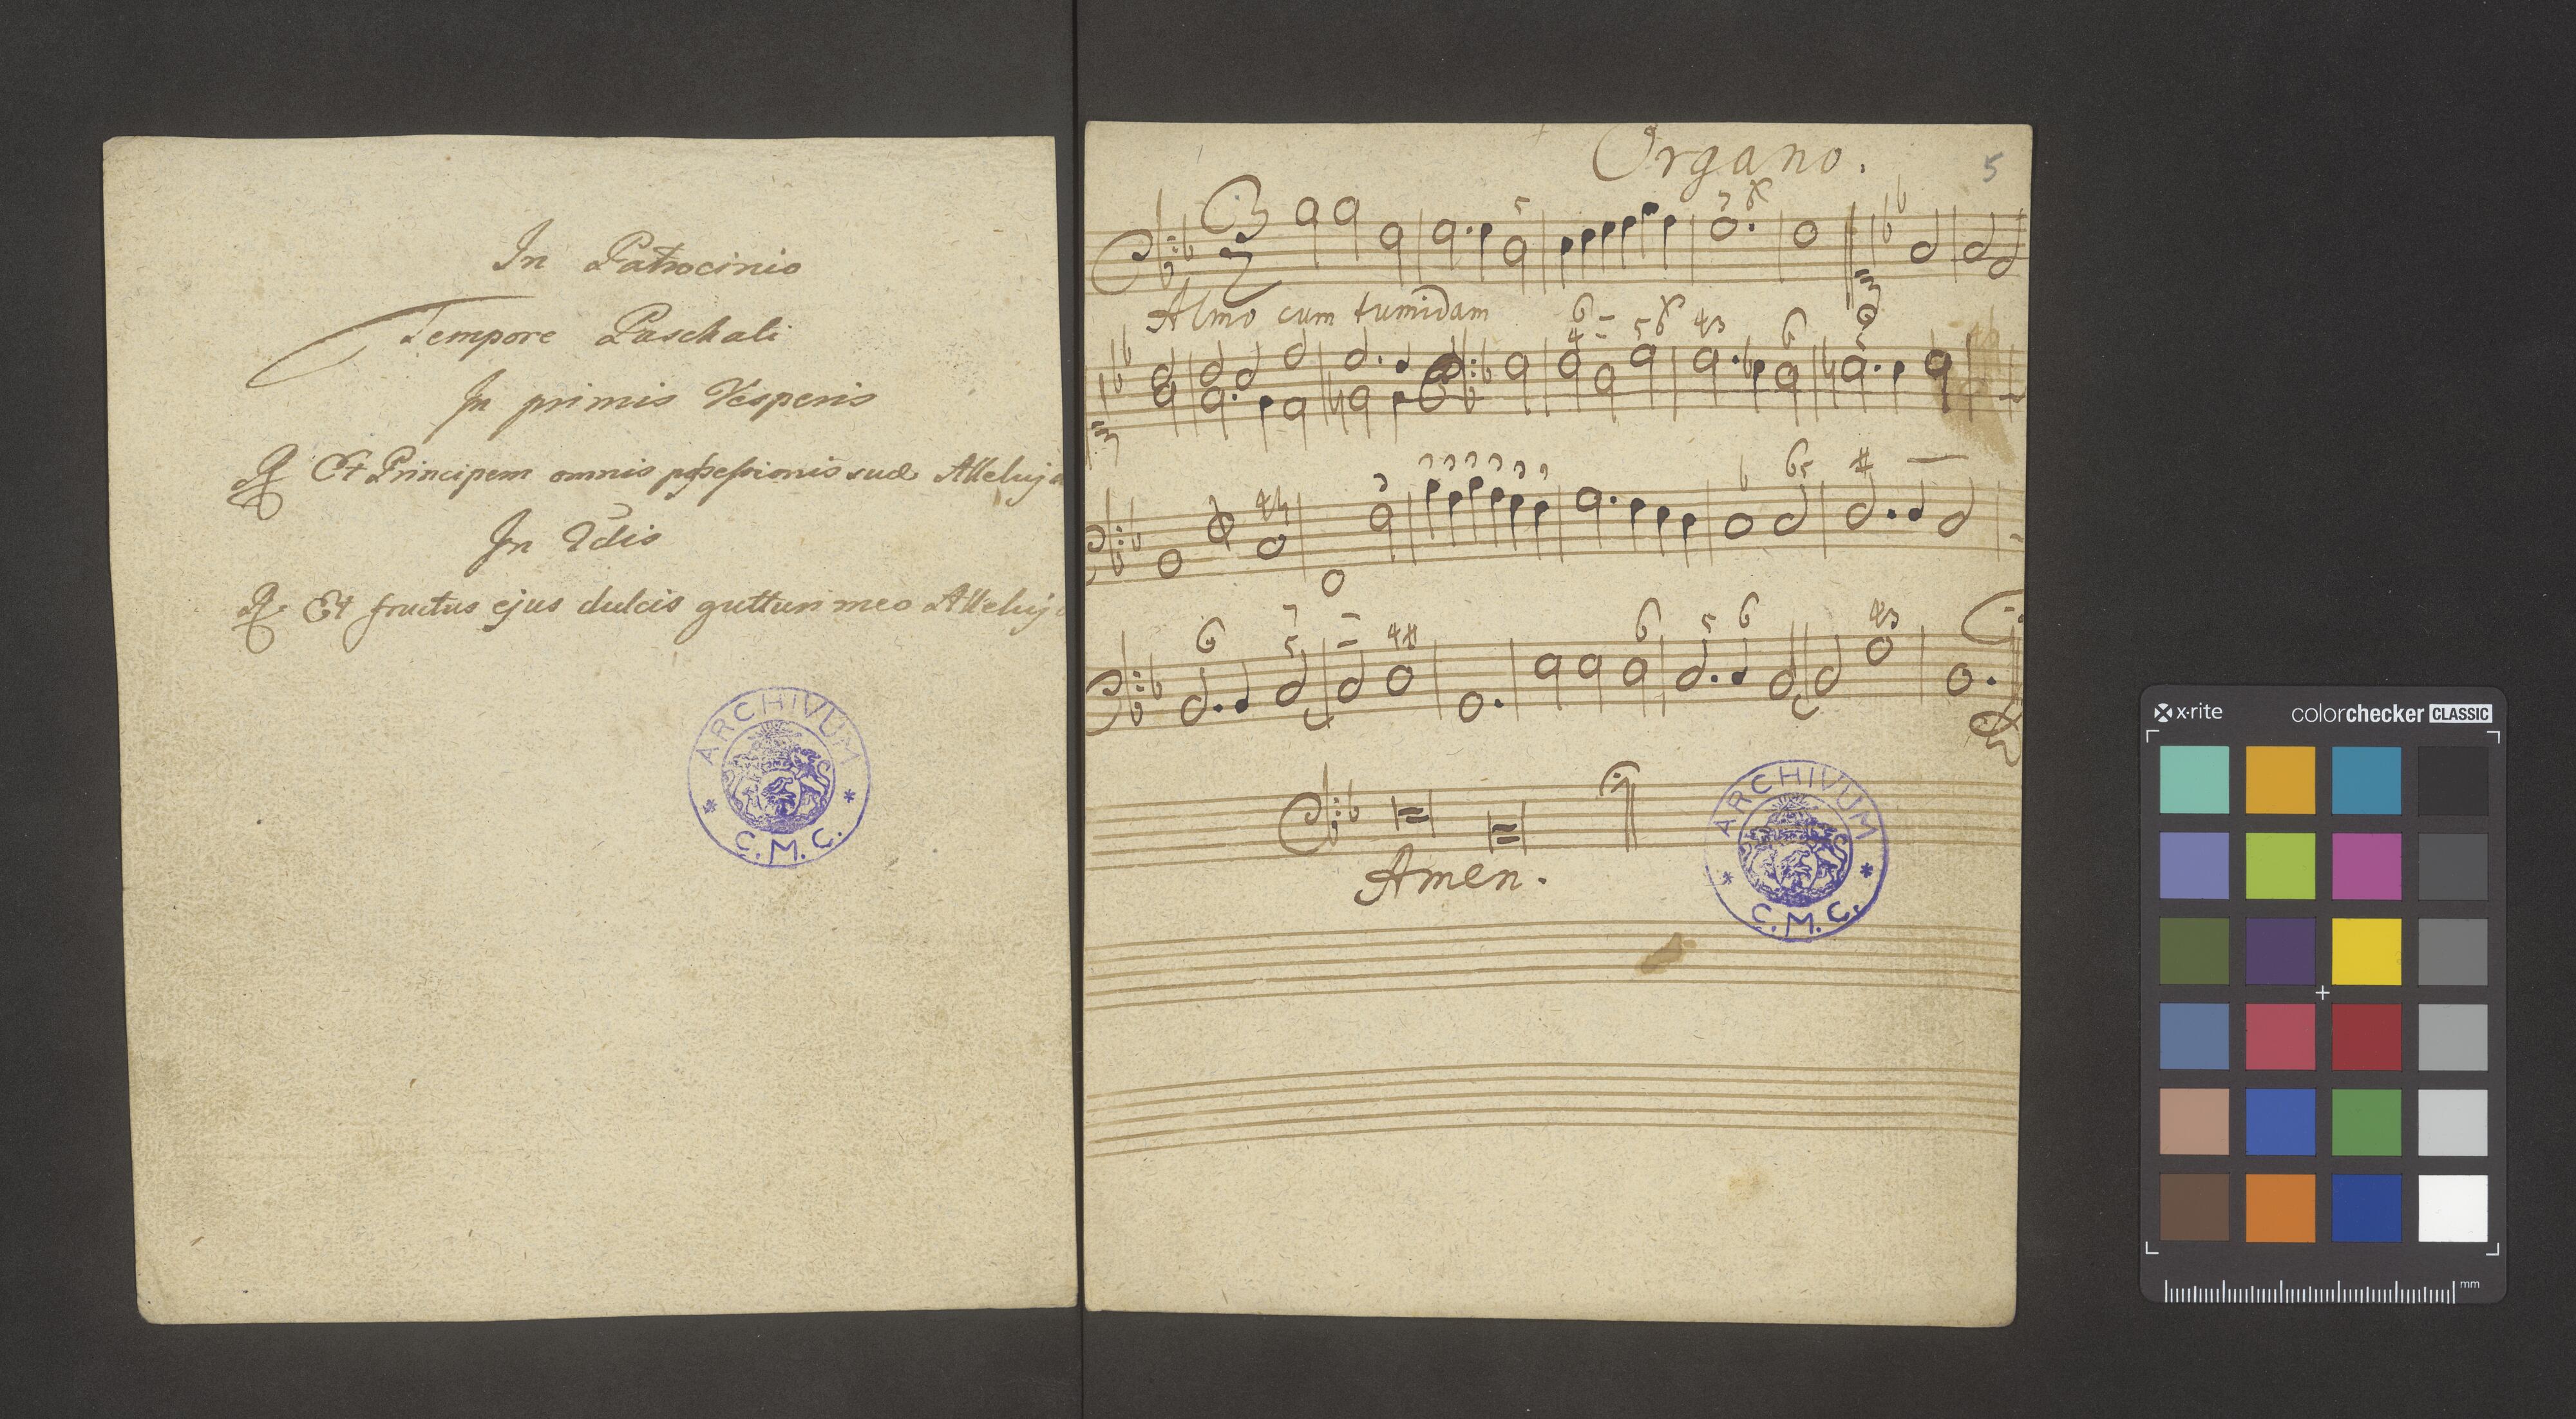 In Patrocinio
Tempore Paschali
In primis Vesperis
℟ Et Principem omnis possessionis suæ Alleluja
In 2dis
℟ Et fructus ejus dulcis gutturi meo Alleluja
ARCHIVUM
* C. M. C. *
Organo.
5
Almo cum tumidam
Amen.
ARCHIVUM
* C. M. C. *
x·rite
colorchecker CLASSIC
mm